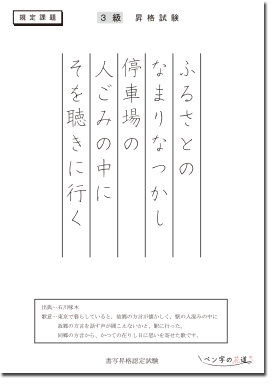 規定課題
3級 昇格試験
ふるさとの
なまりなつかし
停車場の
人ごみの中に
そを聴きに行く
出典…石川啄木
歌意…東京で暮らしていると、故郷の方言が懐かしく、駅の人混みの中に
故郷の方言を話す声が聞こえないかと、駅に行った。
同郷の方言から、かつての在りし日に思いを寄せた歌です。
書写昇格認定試験
ペン字の